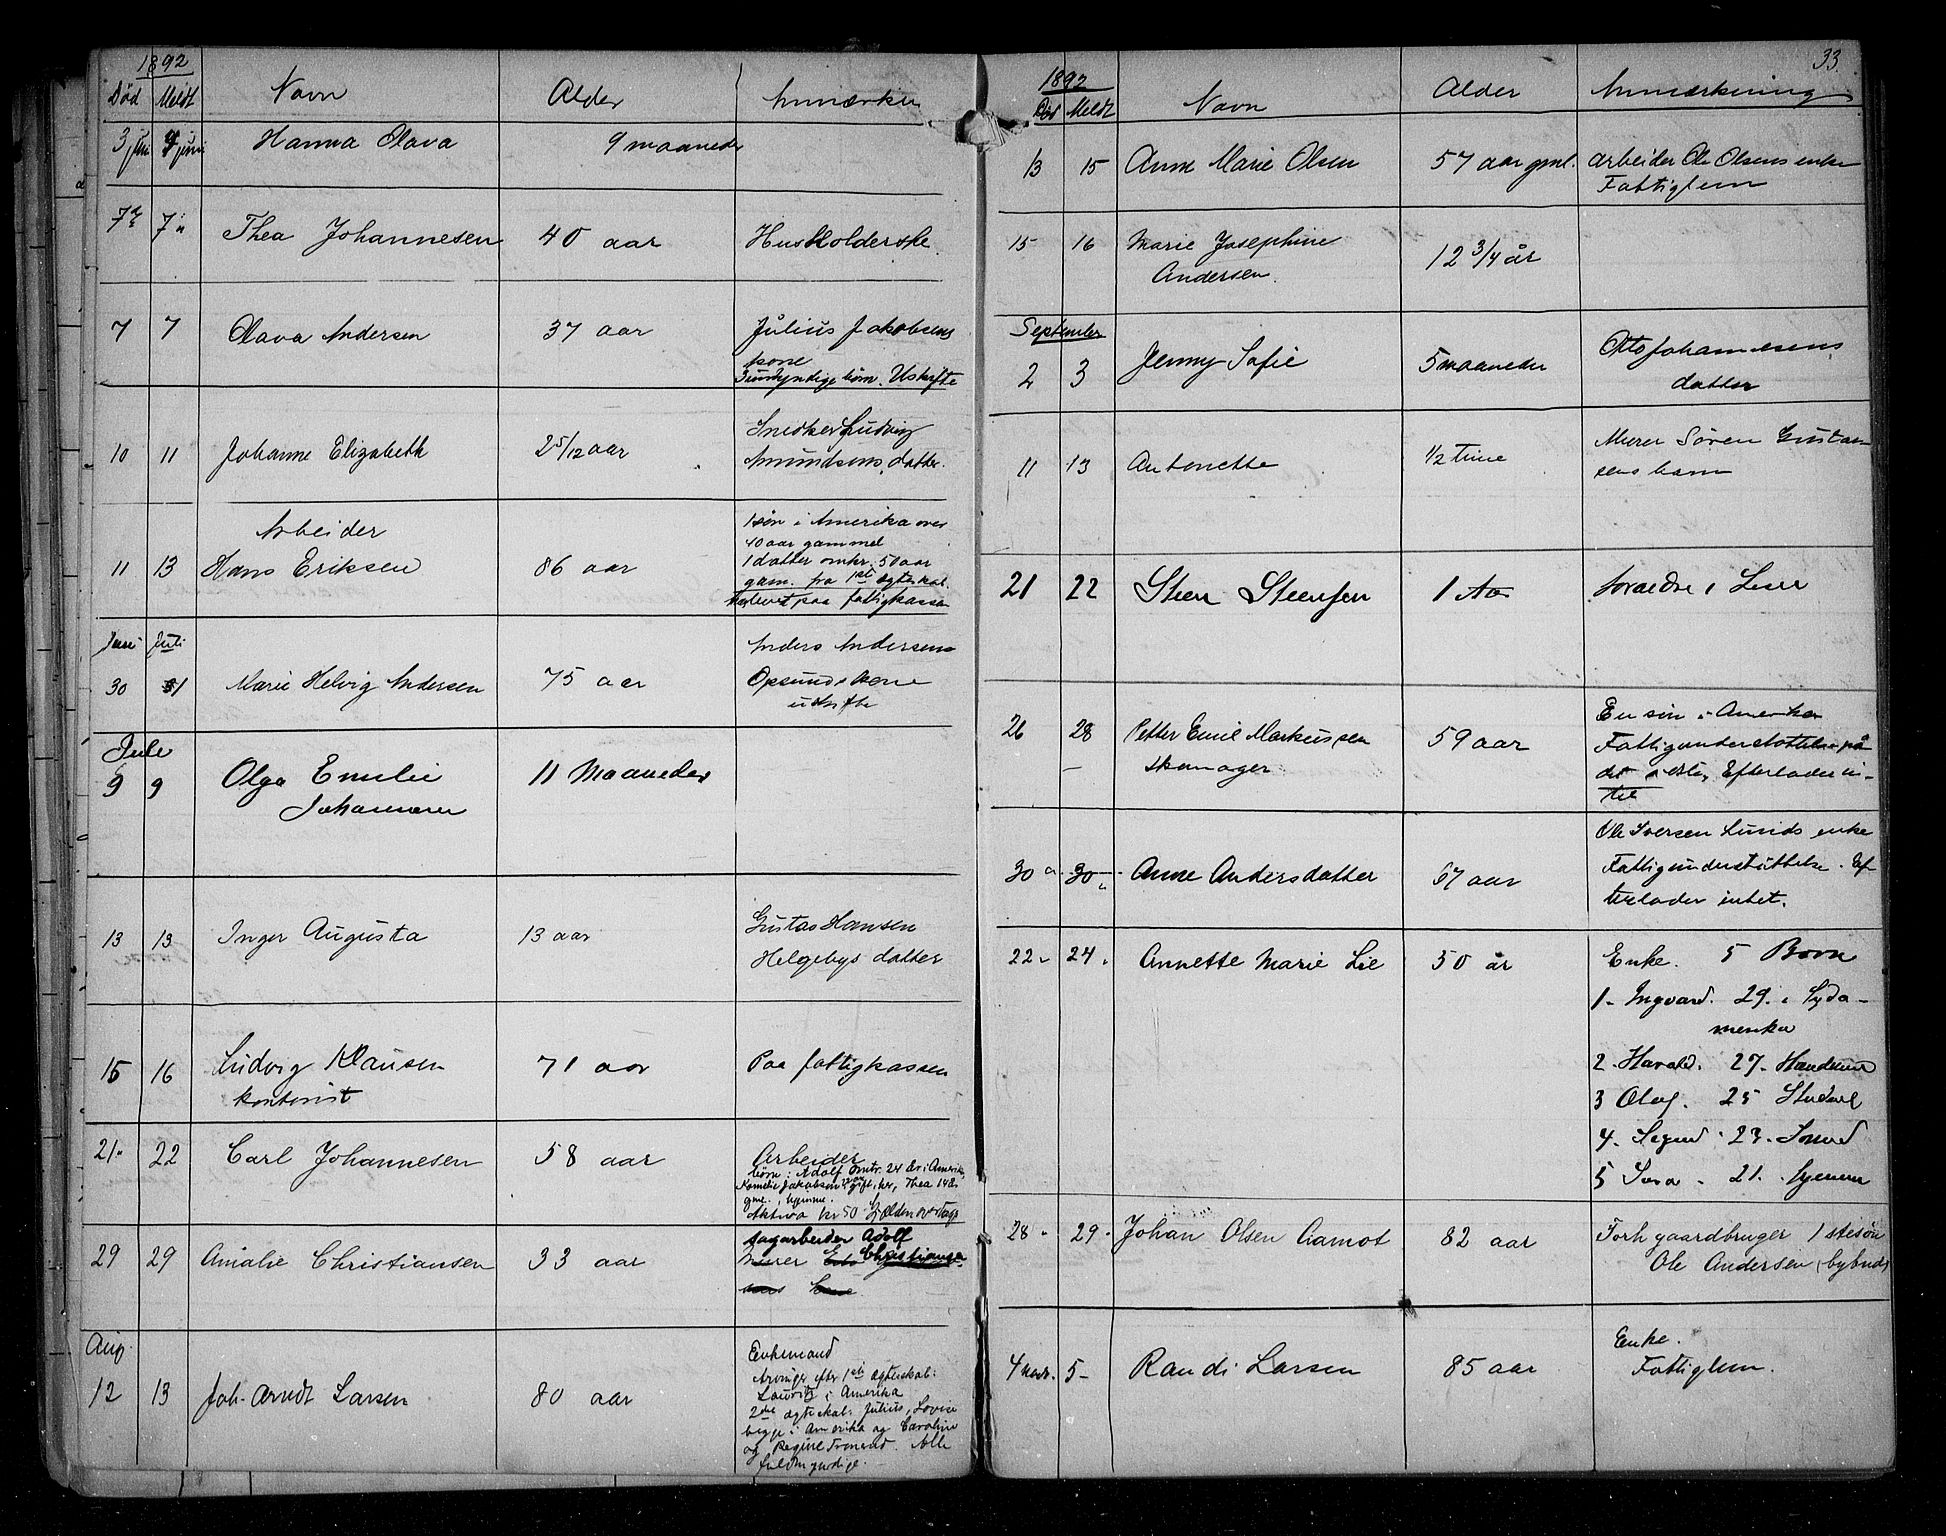 1892
Død Meldt Navn Alder Anmærkn
3 juni 4 juni Hanna Olava 9 maaneder
7de 7" Thea Johannesen 40 aar Husholderske
7 7 Olava Andersen 37 aar Julius Jakobsens
kone
3 umyndige børn. Uskifte
10 11 Johanne Elizabeth 2 5/12 aar Snedker Ludvig
Amundsens datter.
Arbeider
11 13 Hans Eriksen 86 aar 1 søn i Amerika over
40 aar gammel
1 datter omkr. 50 aar
gam. fra 1ste ægteskab.
paa fattigkassen
Juni Juli
30 1 Marie Helvig Andersen 75 aar Anders Andersens
Opsund kone
uskifte
Juli
9 9 Olga Emilie 11 Maaneder
Johannesen
13 13 Inger Augusta 13 aar Gustav Hansen
Helgebys datter
15 16 Ludvig Klausen 71 aar Paa fattigkassen
kontorist
21" 22 Carl Johannesen 58 aar Arbeider
børn: Adolf omtr. 24 år i Amerika,
Jakobsen gift, her, Thea 14 år
gml. hjemme.
Aktiva kr 50
29 29 Amalie Christiansen 33 aar sagarbeider Adolf
Murer Christiansen
Aug.
12 13 Joh. Arndt Larsen 80 aar Enkemand
Arvinger efter 1ste ægteskab:
Lauritz i Amerika
2det ægteskab: Julius, Lovise
begge i Amerika og Caroline
og Regine Tronsrud. Alle
fuldmyndige.
33.
1892
Død Meldt Navn Alder Anmærkning
13 15 Anne Marie Olsen 57 aar gml. arbeider Ole Olsens enke
Fattiglem
15 16 Marie Josephine 12 3/4 år
Andersen.
September
2 3 Jenny Sofie 5 maaneder Otto Johannesens
datter
11 13 Antonette 1/2 time Murer Søren Gustav
sens barn
21 22 Steen Steensen 1 Aar foraeldre i Live
26 28 Petter Emil Markussen 59 aar En søn i Amerika
skomager Fattigunderstøttelse på
det Efterlader in-
tet
30" 30" Anne Andersdatter 67 aar Ole Iversen Lunds enke
Fattigunderstøttelse. Ef
terlader intet.
22" 24" Annette Marie Lie 50 år Enke. 5 Børn
1- Ingvard. 29. i Syda-
merika
2- Harald. 27-
3 Olaf. 25 Student
4. Sigurd 23-
5 21.
28" 29" Johan Olsen Aamot 82 aar Forh gaardbruger 1 stesøn
Ole Andersen (bybud)
4 Novb. 5- Randi Larsen 85 aar Enke.
Fattiglem.